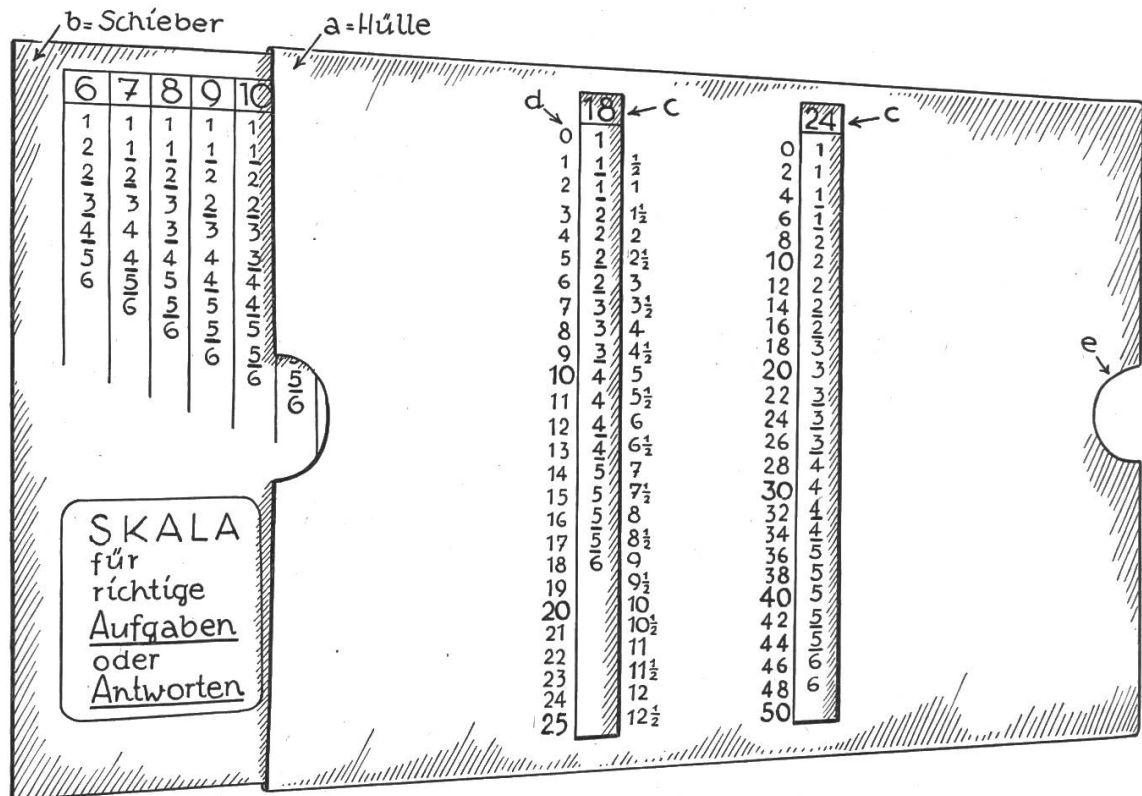 b=Schieber
a=Hülle
6 7 8 9 10
1 1 1 1 1
2 1 1 1 1
2 2 2 2 2
3 3 3 2 2
4 4 3 3 3
5 4 4 4 3
6 5 5 4 4
6 5 5 4
6 5 5
6 5
6
5
6
SKALA
für
richtige
Aufgaben
oder
Antworten
d 18 c
0 1
1 1 ½
2 1 1
3 2 1½
4 2 2
5 2 2½
6 2 3
7 3 3½
8 3 4
9 3 4½
10 4 5
11 4 5½
12 4 6
13 4 6½
14 5 7
15 5 7½
16 5 8
17 5 8½
18 6 9
19 9½
20 10
21 10½
22 11
23 11½
24 12
25 12½
24 c
0 1
2 1
4 1
6 1
8 2
10 2
12 2
14 2
16 2
18 3
20 3
22 3
24 3
26 3
28 4
30 4
32 4
34 4
36 5
38 5
40 5
42 5
44 5
46 6
48 6
50
e